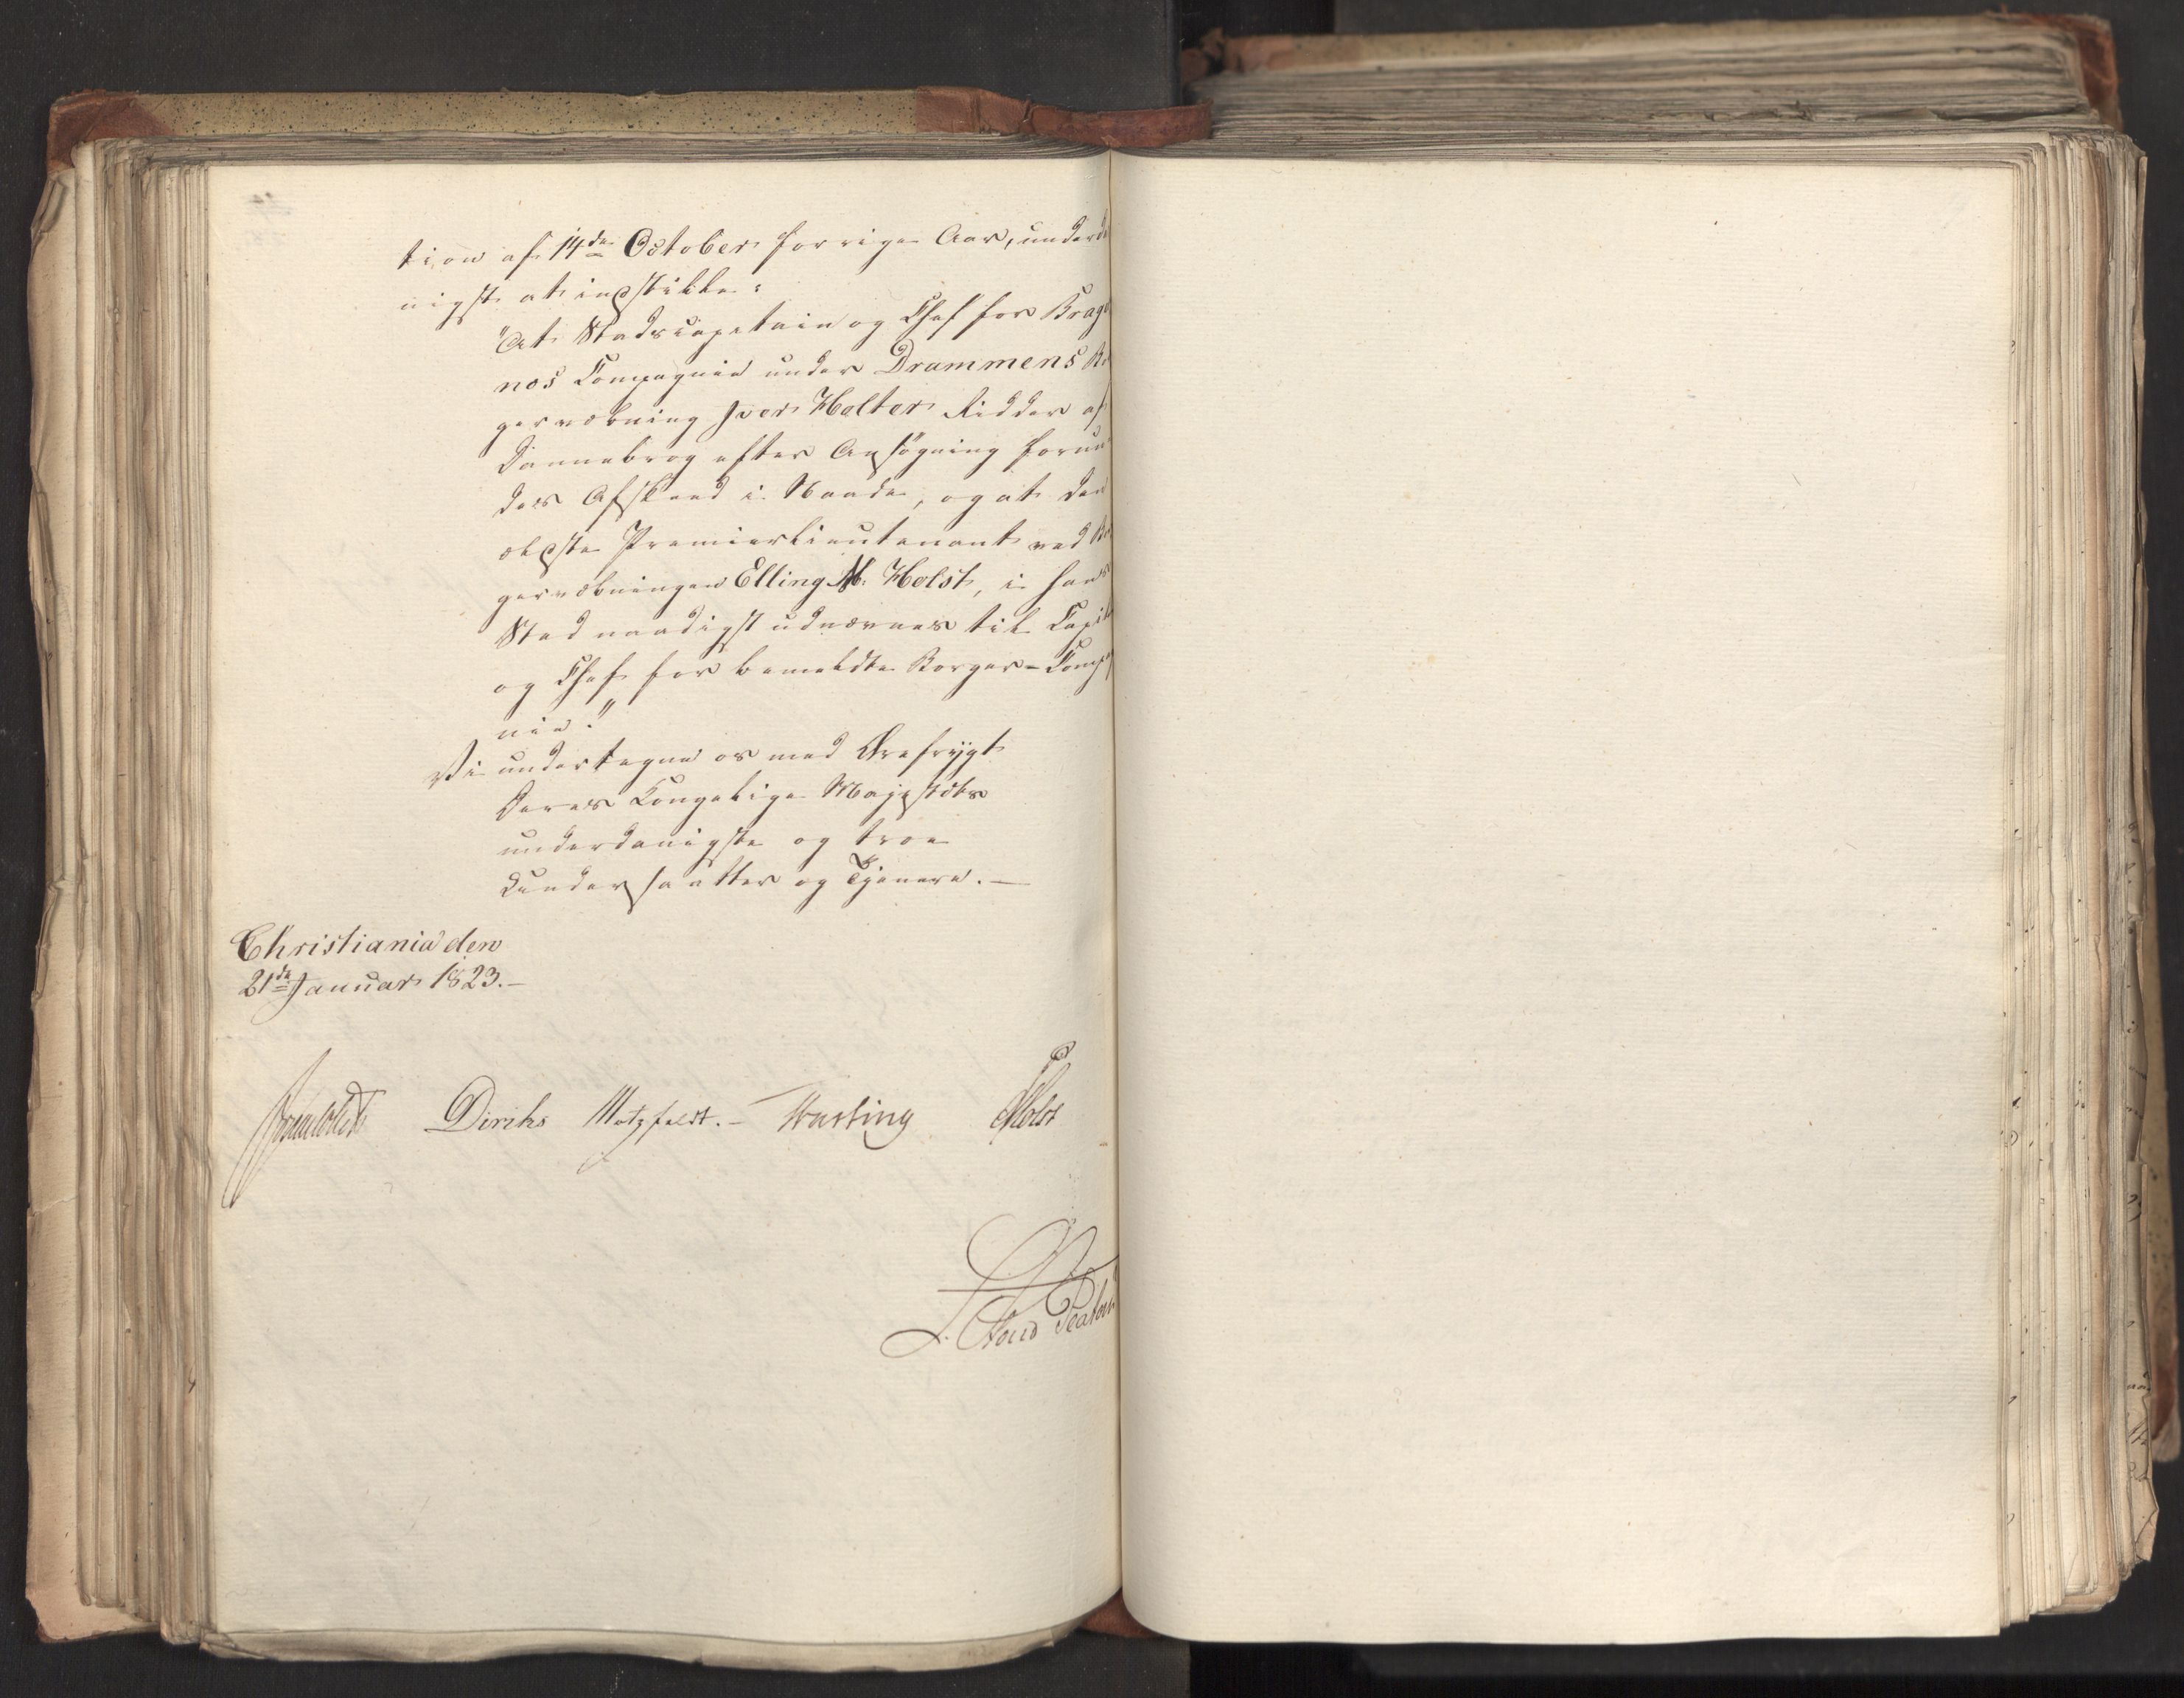 tion af 14de October forrige Aar, underda
nigst at indstille:
"At Stadscapitain og Chef for Brage
nes Compagnie under Drammens Bor
gervæbning Iver Holter Ridder af
Dannebrog efter Ansøgning forun
des Afskeed i Naade, og at den
ældste Premierlieutenant ved Bor
gervæbningen Elling M: Holst, i hans
Sted naadigst udnævnes til Capit
og Chef for bemeldte Borger-Compag
nie."
Vi undertegne os med Ærefrygt
Deres Kongelige Majestæts
underdanigste og troe
Undersaatter og Tjenere. —
Christiania den
21de Januar 1823. —
Diriks Motzfeldt. – Holst